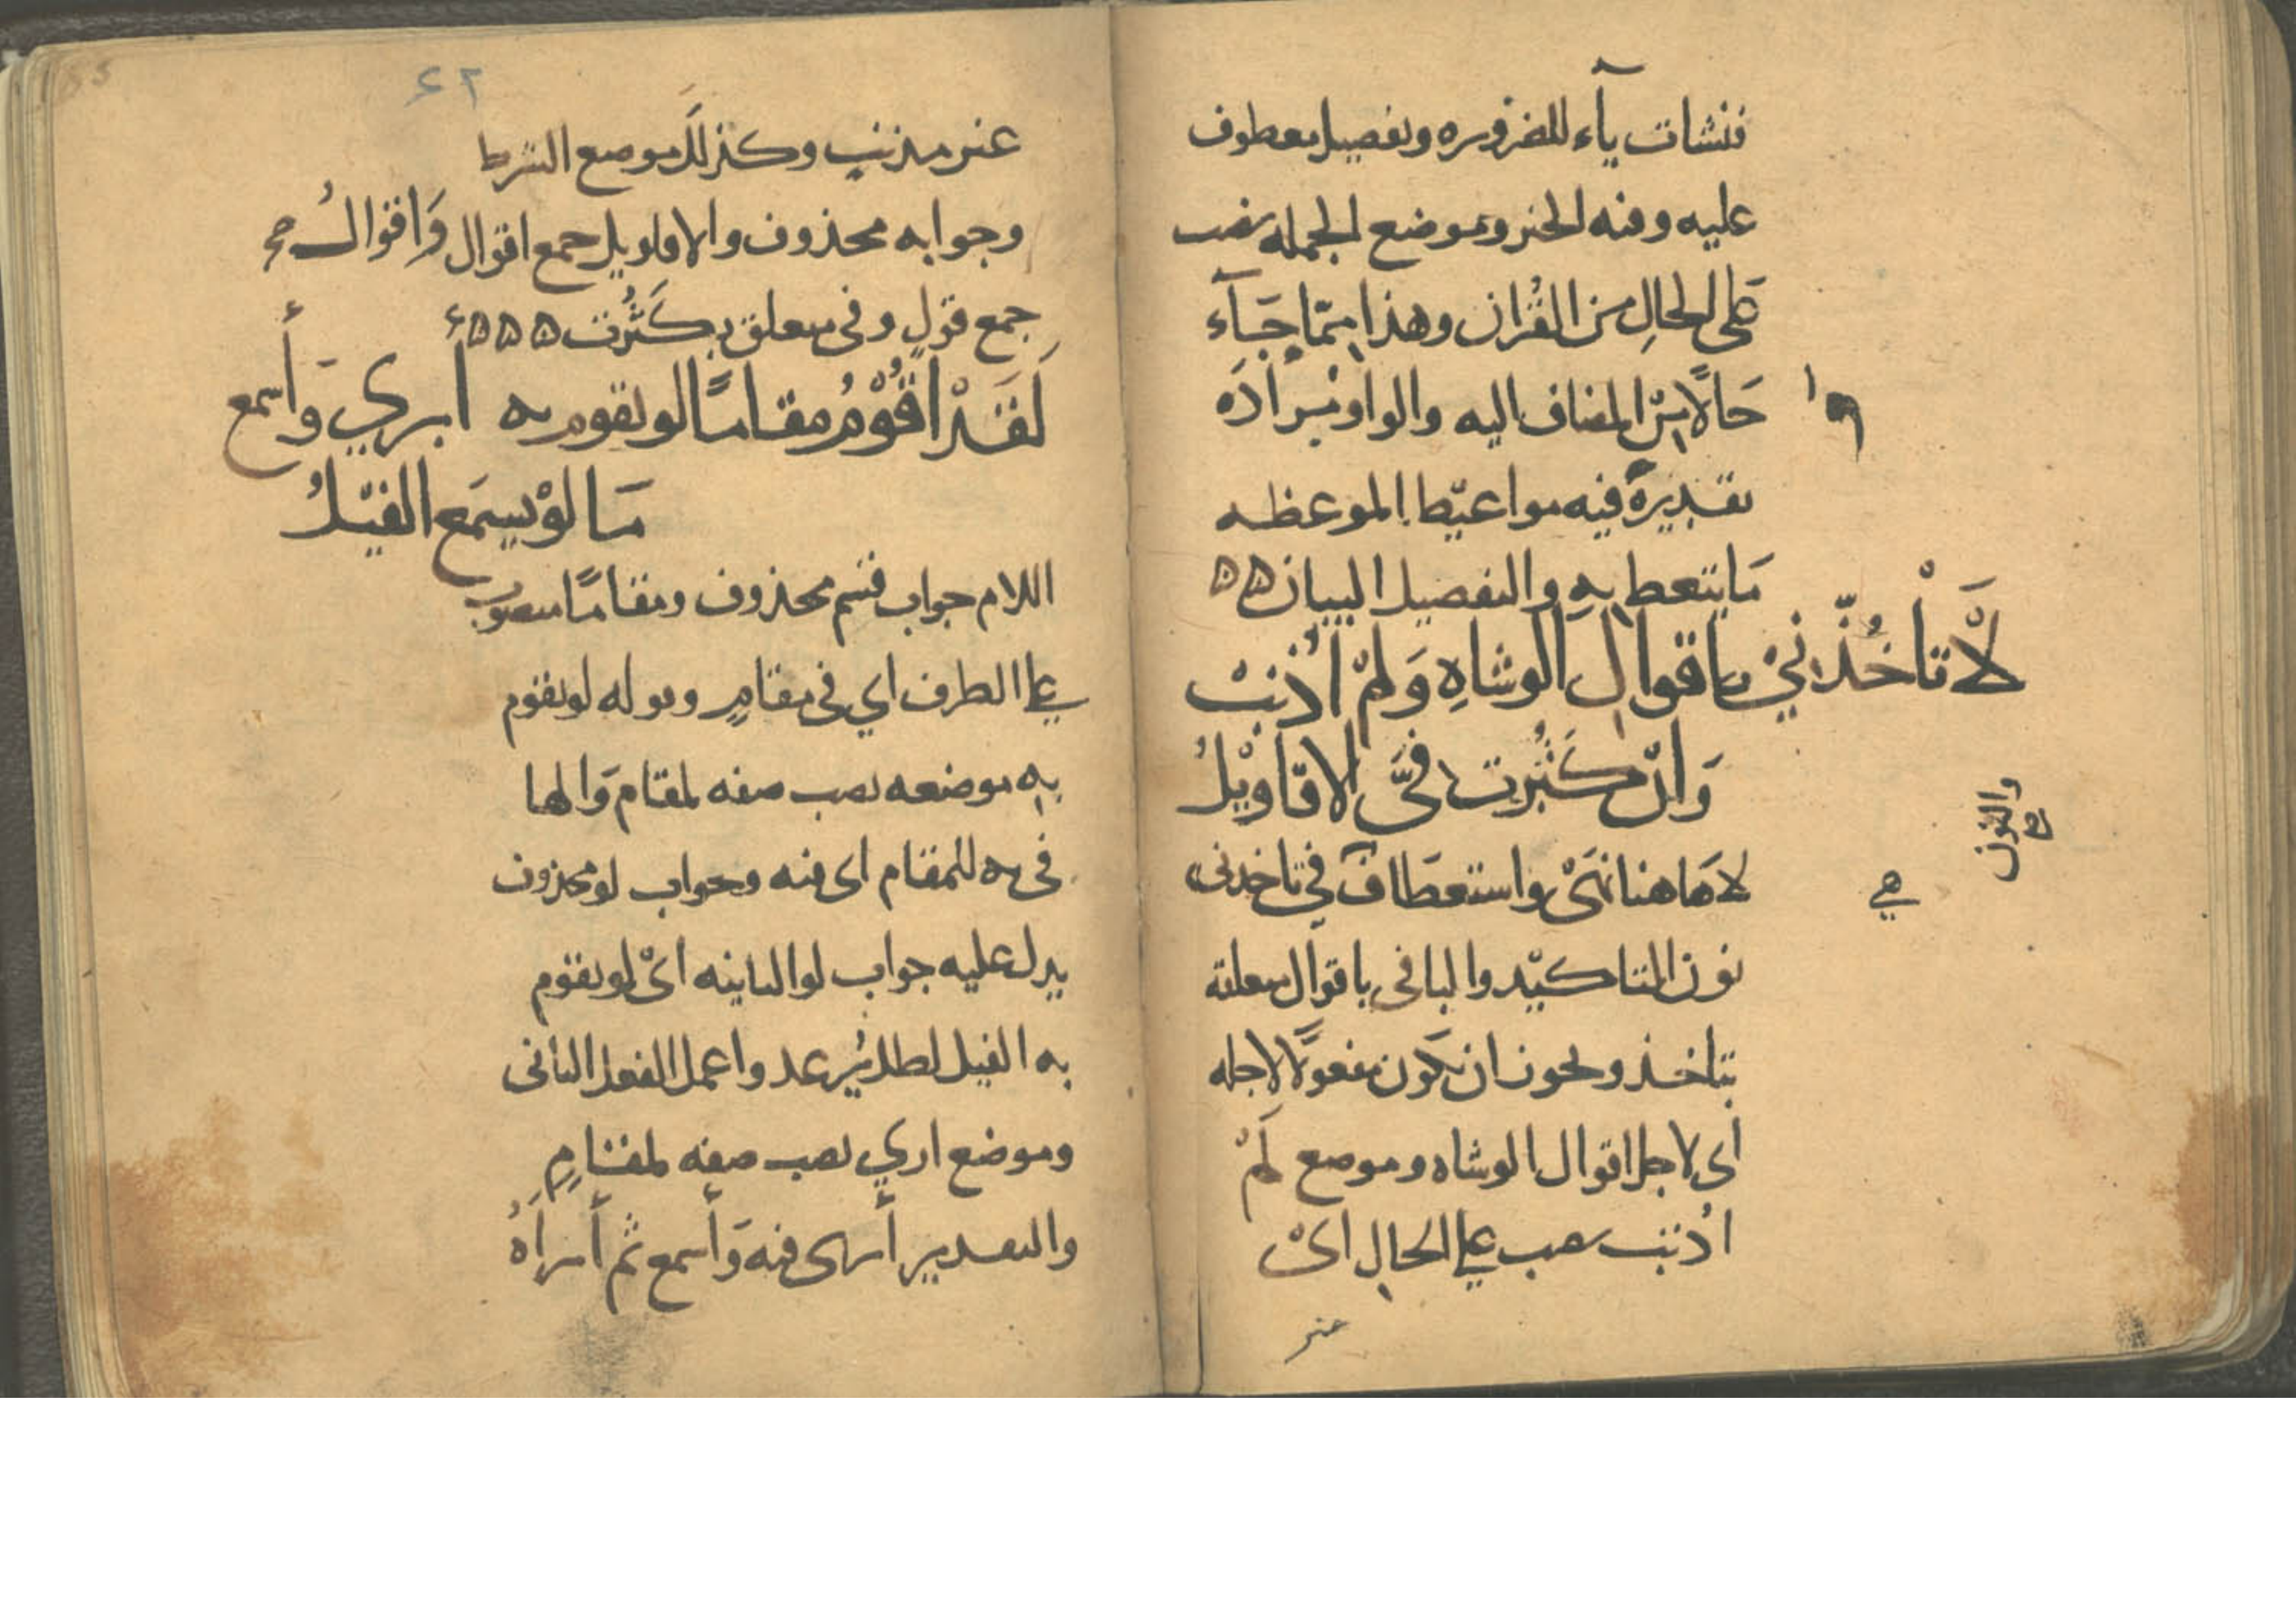 فنشات ياء للضروره وتفصيل معطوف
عليه وفيه الخبر وموضع الجمله نصب
على الحالِ من القُرآن وهذا مِمّا جَآء
حَالًا مِنْ المضاف اليه والواو مُرادَه
تقديرهُ فيه مواعيظ الموعظه
مَا يتعظ بِهِ والتفصيل البيان ۵۵
لَا تَأْخُذَنّي باقوالِ الوشاهِ وَلمْ اُذنبْ
وَانْ كَثُرَت فيَّ الاقَاوِيْلُ
لا هَاهنا نهَىْ واستعطاف في تاخدنى
والنون
صح
هي
نون التاكيد والبا فى باقوال متعلقه
بتاخذ ويجوز ان يَكون مفعولًا لاجله
اى لاجل اقوال الوشاه وموضع لَمْ
اُذنب نصب على الحالِ اىْ
غير
٤٢
غير مذنب وكذلك موضع الشرط
وجوابه محذوف والاقاويل جمع اقوال وَاقوالُ
جمع قولٍ وفى متعلق بِكَثُرت ۵۵۵
لَقَدْ اَقُوْمُ مقامًا لو يقوم به أري وَأسمع
مَا لوْ يسمَع الفيْلُ
اللام جواب قسم محذوف ومقامًا منصوب
على الظرف اي فى مقامٍ وقوله لو يقوم
بِهِ موضعه نصب صفه لمقام وَالها
فى به للمقام اى فيه وجواب لو محذوف
يدل عليه جواب لو الثانيه اىْ لو يقوم
به الفيل لظل يُرعد واعمل الفعل الثانى
وموضع اري نصب صفه لمقامٍ
والتقدير أرى فيه وَأسمع ثم أراهُ